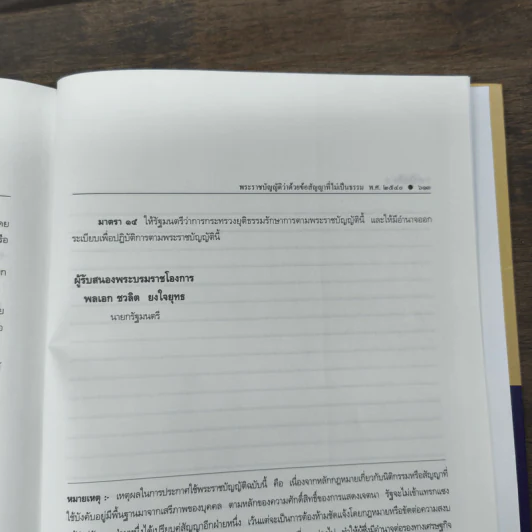 พระราชบัญญัติว่าด้วยข้อสัญญาที่ไม่เป็นธรรม พ.ศ. ๒๕๔๐ ●
มาตรา ๑๕ ให้รัฐมนตรีว่าการกระทรวงยุติธรรมรักษาการตามพระราชบัญญัตินี้ และให้มีอำนาจออก
ระเบียบเพื่อปฏิบัติการตามพระราชบัญญัตินี้
ผู้รับสนองพระบรมราชโองการ
พลเอก ชวลิต ยงใจยุทธ
นายกรัฐมนตรี
หมายเหตุ :- เหตุผลในการประกาศใช้พระราชบัญญัติฉบับนี้ คือ เนื่องจากหลักกฎหมายเกี่ยวกับนิติกรรมหรือสัญญาที่
ใช้บังคับอยู่มีพื้นฐานมาจากเสรีภาพของบุคคล ตามหลักของความศักดิ์สิทธิ์ของการแสดงเจตนา รัฐจะไม่เข้าแทรกแซง
ได้เปรียบคู่สัญญาอีกฝ่ายหนึ่ง เว้นแต่จะเป็นการต้องห้ามชัดแจ้งโดยกฎหมายหรือขัดต่อความสงบ